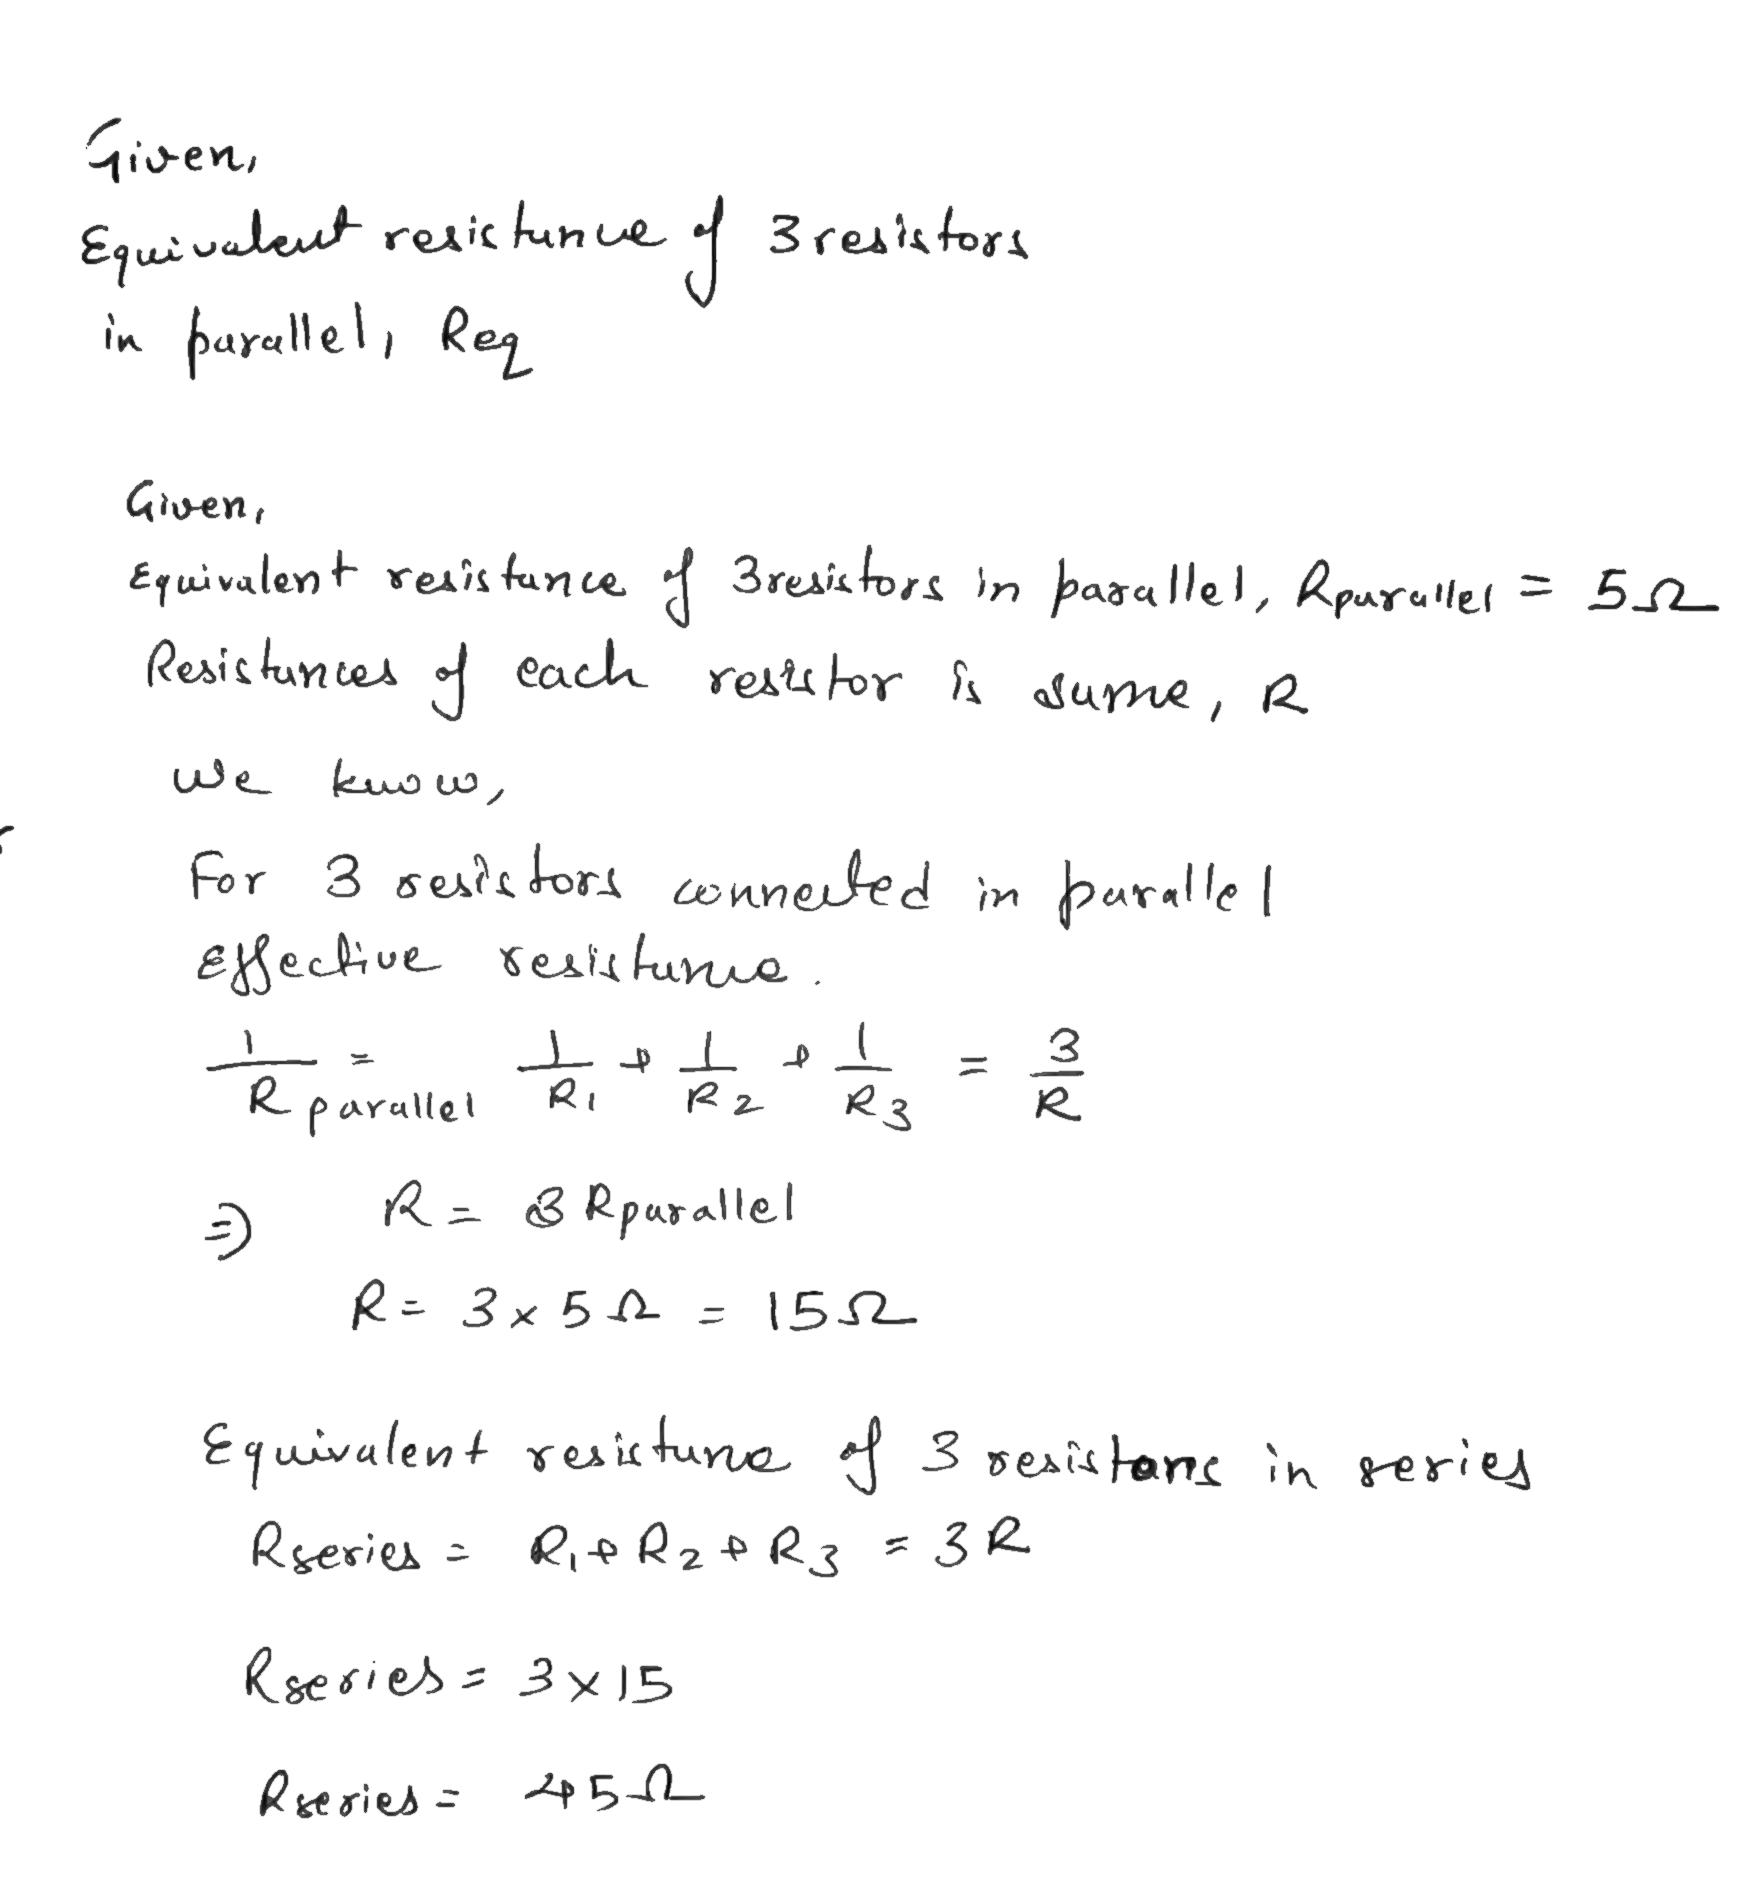 Given,
Equivalent resistance of 3 resistors
in parallel, Req
Given,
Equivalent resistance of 3 resistors in parallel, Rparallel = 5Ω
Resistances of each resistor is same, R
We know,
For 3 resistors connected in parallel
Effective resistance.
1/Rparallel = 1/R1 + 1/R2 + 1/R3 = 3/R
⇒ R = 3 Rparallel
R = 3 × 5Ω = 15Ω
Equivalent resistance of 3 resistors in series
Rseries = R1 + R2 + R3 = 3R
Rseries = 3 × 15
Rseries = 45Ω